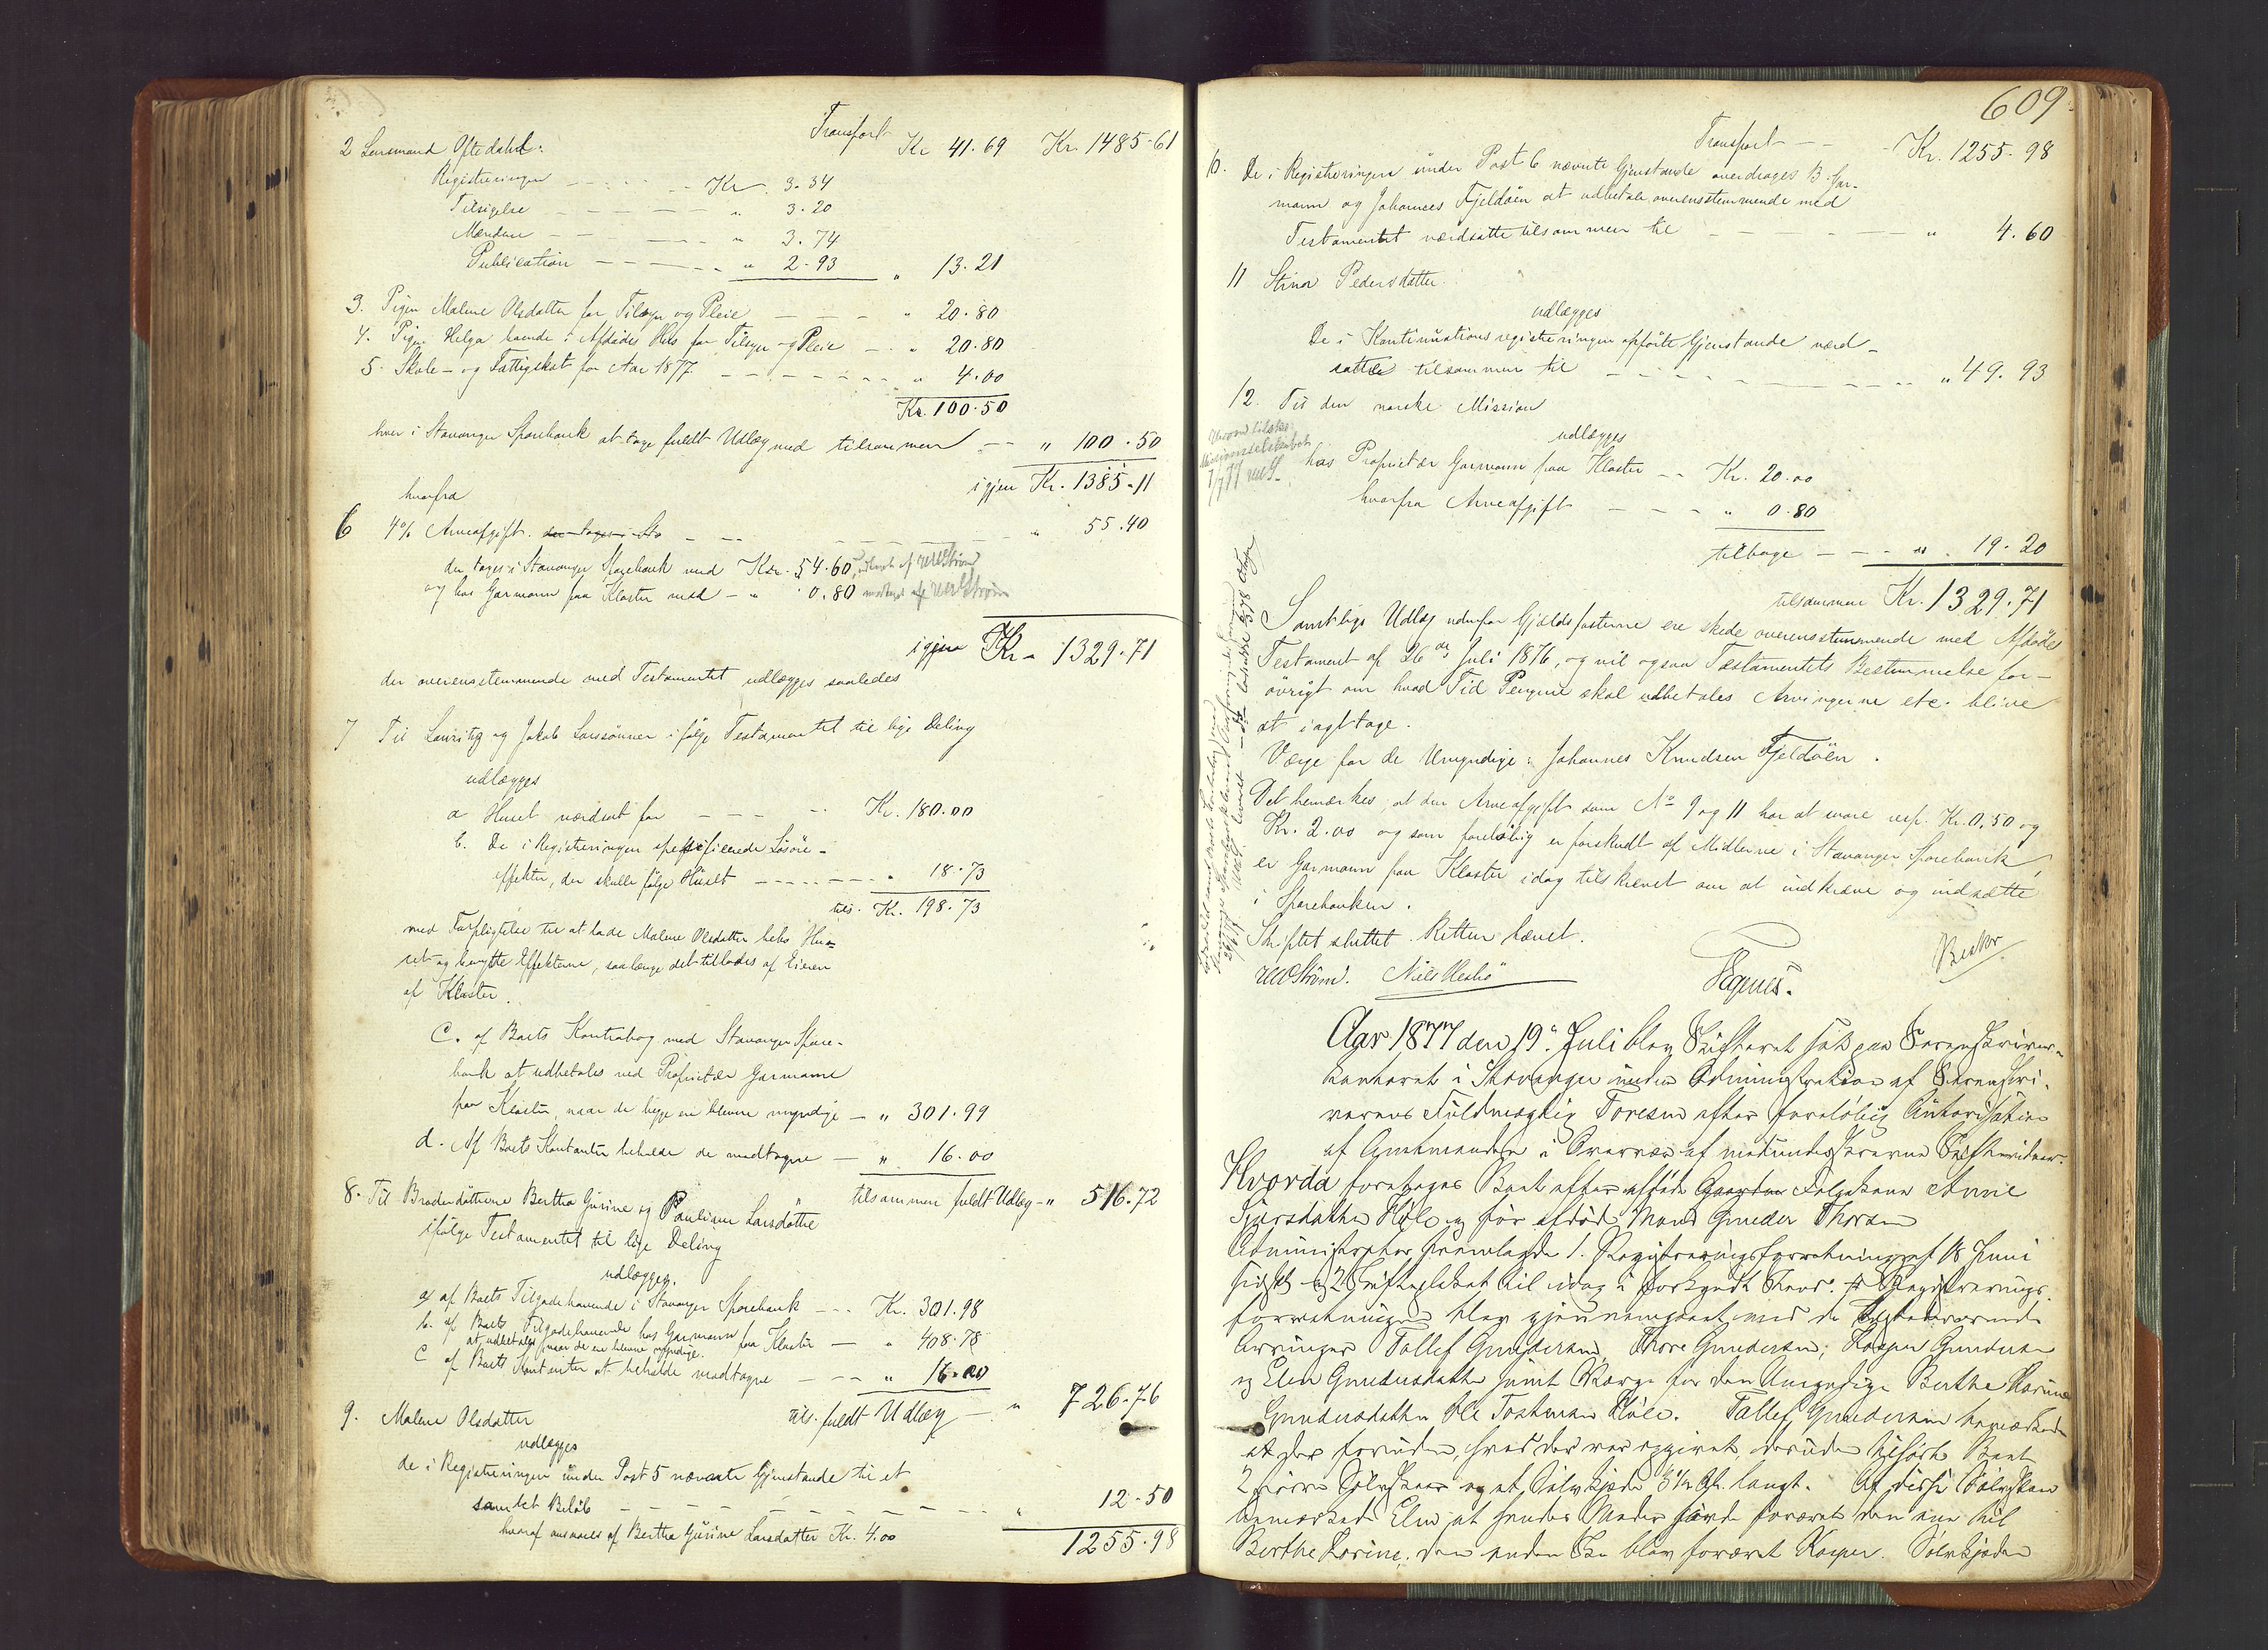 Transport Kr 41.69 Kr. 1485.61
2 Lensmand Oftedahl:
Registreringen Kr. 3.34
Tilsigelse " 3.20
Mændene " 3.74
Publication " 2.93 " 13.21
3. Pigen Malene Olsdatter for Tilsyn og Pleie " 20.80
4. Pigen Helga boende i Afdødes Hus for Tilsyn og Pleie " 20.80
5. Skole- og Fattigskat for Aar 1877 " 4.00
Kr. 100.50
hver i Stavanger Sparebank at tage fuldt Udlæg med tilsammen " 100.50
igjen Kr. 1385.11
hvorfra
6 4% Arveafgift " 55.40
der tages i Stavanger Sparebank med Kr. 54.60
og hos Garmann paa Kloster med " 0.80
igjen Kr. 1329.71
der overensstemmende med Testamentet udlægges saaledes
7 Til Lauritz og Jakob Larssønner ifølge Testamentet til lige Deling
udlægges
a Huset værdsat for Kr. 180.00
b. De i Registreringen specificerede Løsøre-
effekter, der skulle følge Huset " 18.73
tils. Kr. 198.73
med Forpligtelse til at lade Malene Olsdatter bebo Hu-
set og benytte Effekterne, saalænge det tillades af Eieren
af Kloster.
c. af Boets Kontrabog med Stavanger Spare-
bank at udbetales ved Proprietær Garmann
paa Kloster, naar de begge ere blevne myndige " 301.99
d. Af Boets Kontanter beholde de modtagne " 16.00
tilsammen fuldt Udlæg " 516.72
8. Til Broderdøttrene Bertha Gurine og Pauline Larsdøttre
ifølge Testamentet til lige Deling
udlægges.
a) af Boets Tilgodehavende i Stavanger Sparebank Kr. 301.98
b. af Boets Tilgodehavende hos Garmann paa Kloster " 408.78
at udbetales naar de ere blevne myndige.
c af Boets Kontanter at beholde modtagne " 16.00
tils. fuldt Udlæg " 726.76
9. Malene Olsdatter
udlægges
de i Registreringen under Post 5 nævnte Gjenstande til et
samlet Beløb " 12.50
hvoraf ansvares af Bertha Gurine Larsdatter Kr. 4.00
1255.98
609
Transport Kr. 1255.98
10. De i Registreringen under Post 6 nævnte Gjenstande overdrages B. Gar-
mann og Johannes Fjeldøen at udbetale overensstemmende med
Testamentet værdsatte tilsammen til " 4.60
11 Stina Pedersdatter
udlægges
De i Kontinuationsregistreringen opførte Gjenstande værd-
satte tilsammen til " 49.93
12. Til den norske Mission
udlægges
hos Proprietær Garmann paa Kloster Kr. 20.00
hvorfra Arveafgift " 0.80
tilbage " 19.20
tilsammen Kr. 1329.71
Samtlige Udlæg udenfor Gjældsposterne ere skede overensstemmende med Afdødes
Testament af 26de Juli 1876, og vil ogsaa Testamentets Bestemmelse for-
øvrigt om hvad Tid Pengene skal udbetales Arvingerne etc. blive
at iagttage.
Værge for de Umyndige: Johannes Knudsen Fjeldøen.
Det bemærkes, at den Arveafgift som No 9 og 11 har at svare resp. Kr. 0,50 og
Kr. 2.00 og som foreløbig er forskudt af Midlerne i Stavanger Sparebank,
er Garmann paa Kloster idag tilskrevet om at indkræve og indsætte
i Sparebanken.
Skiftet sluttet. Retten hævet.
Niels Hesbø
Aar 1877 den 19de Juli blev Skifteret sat paa Sorenskriver-
kontoret i Stavanger under Administration af Sorenskri-
verens Fuldmægtig Toresen efter foreløbig Autorisation
af Amtmanden i Overvær af medundertegnede
Hvorda foretoges Boet efter afdøde Folgekone Anne
Sjursdatter Høle og før afdød Mand Gunder Thorsen
Administrator fremlagde 1. Registreringsforretning af 18 Juni
sidstl. og 2 Skifte til idag Registrerings-
forretningen blev gjennemgaaet med de tilstedeværende
Arvinger Tollef Gundersen, Thore Gundersen, Kasper Gundersen
og Elen Gundersdatter samt Værge for den Umyndige Berthe Karine
Gundersdatter Ole Høle. Tollef Gundersen bemærkede
at der foruden, hvad der var opgivet, desuden tilhørte Boet
2 større Sølvskeer og et Sølvkjede langt. Af disse Sølvskeer
bemærkede Elen at hendes Moder havde foræret den ene til
Berthe Karine, den anden Ske blev foræret Kasper. Sølvkjeden